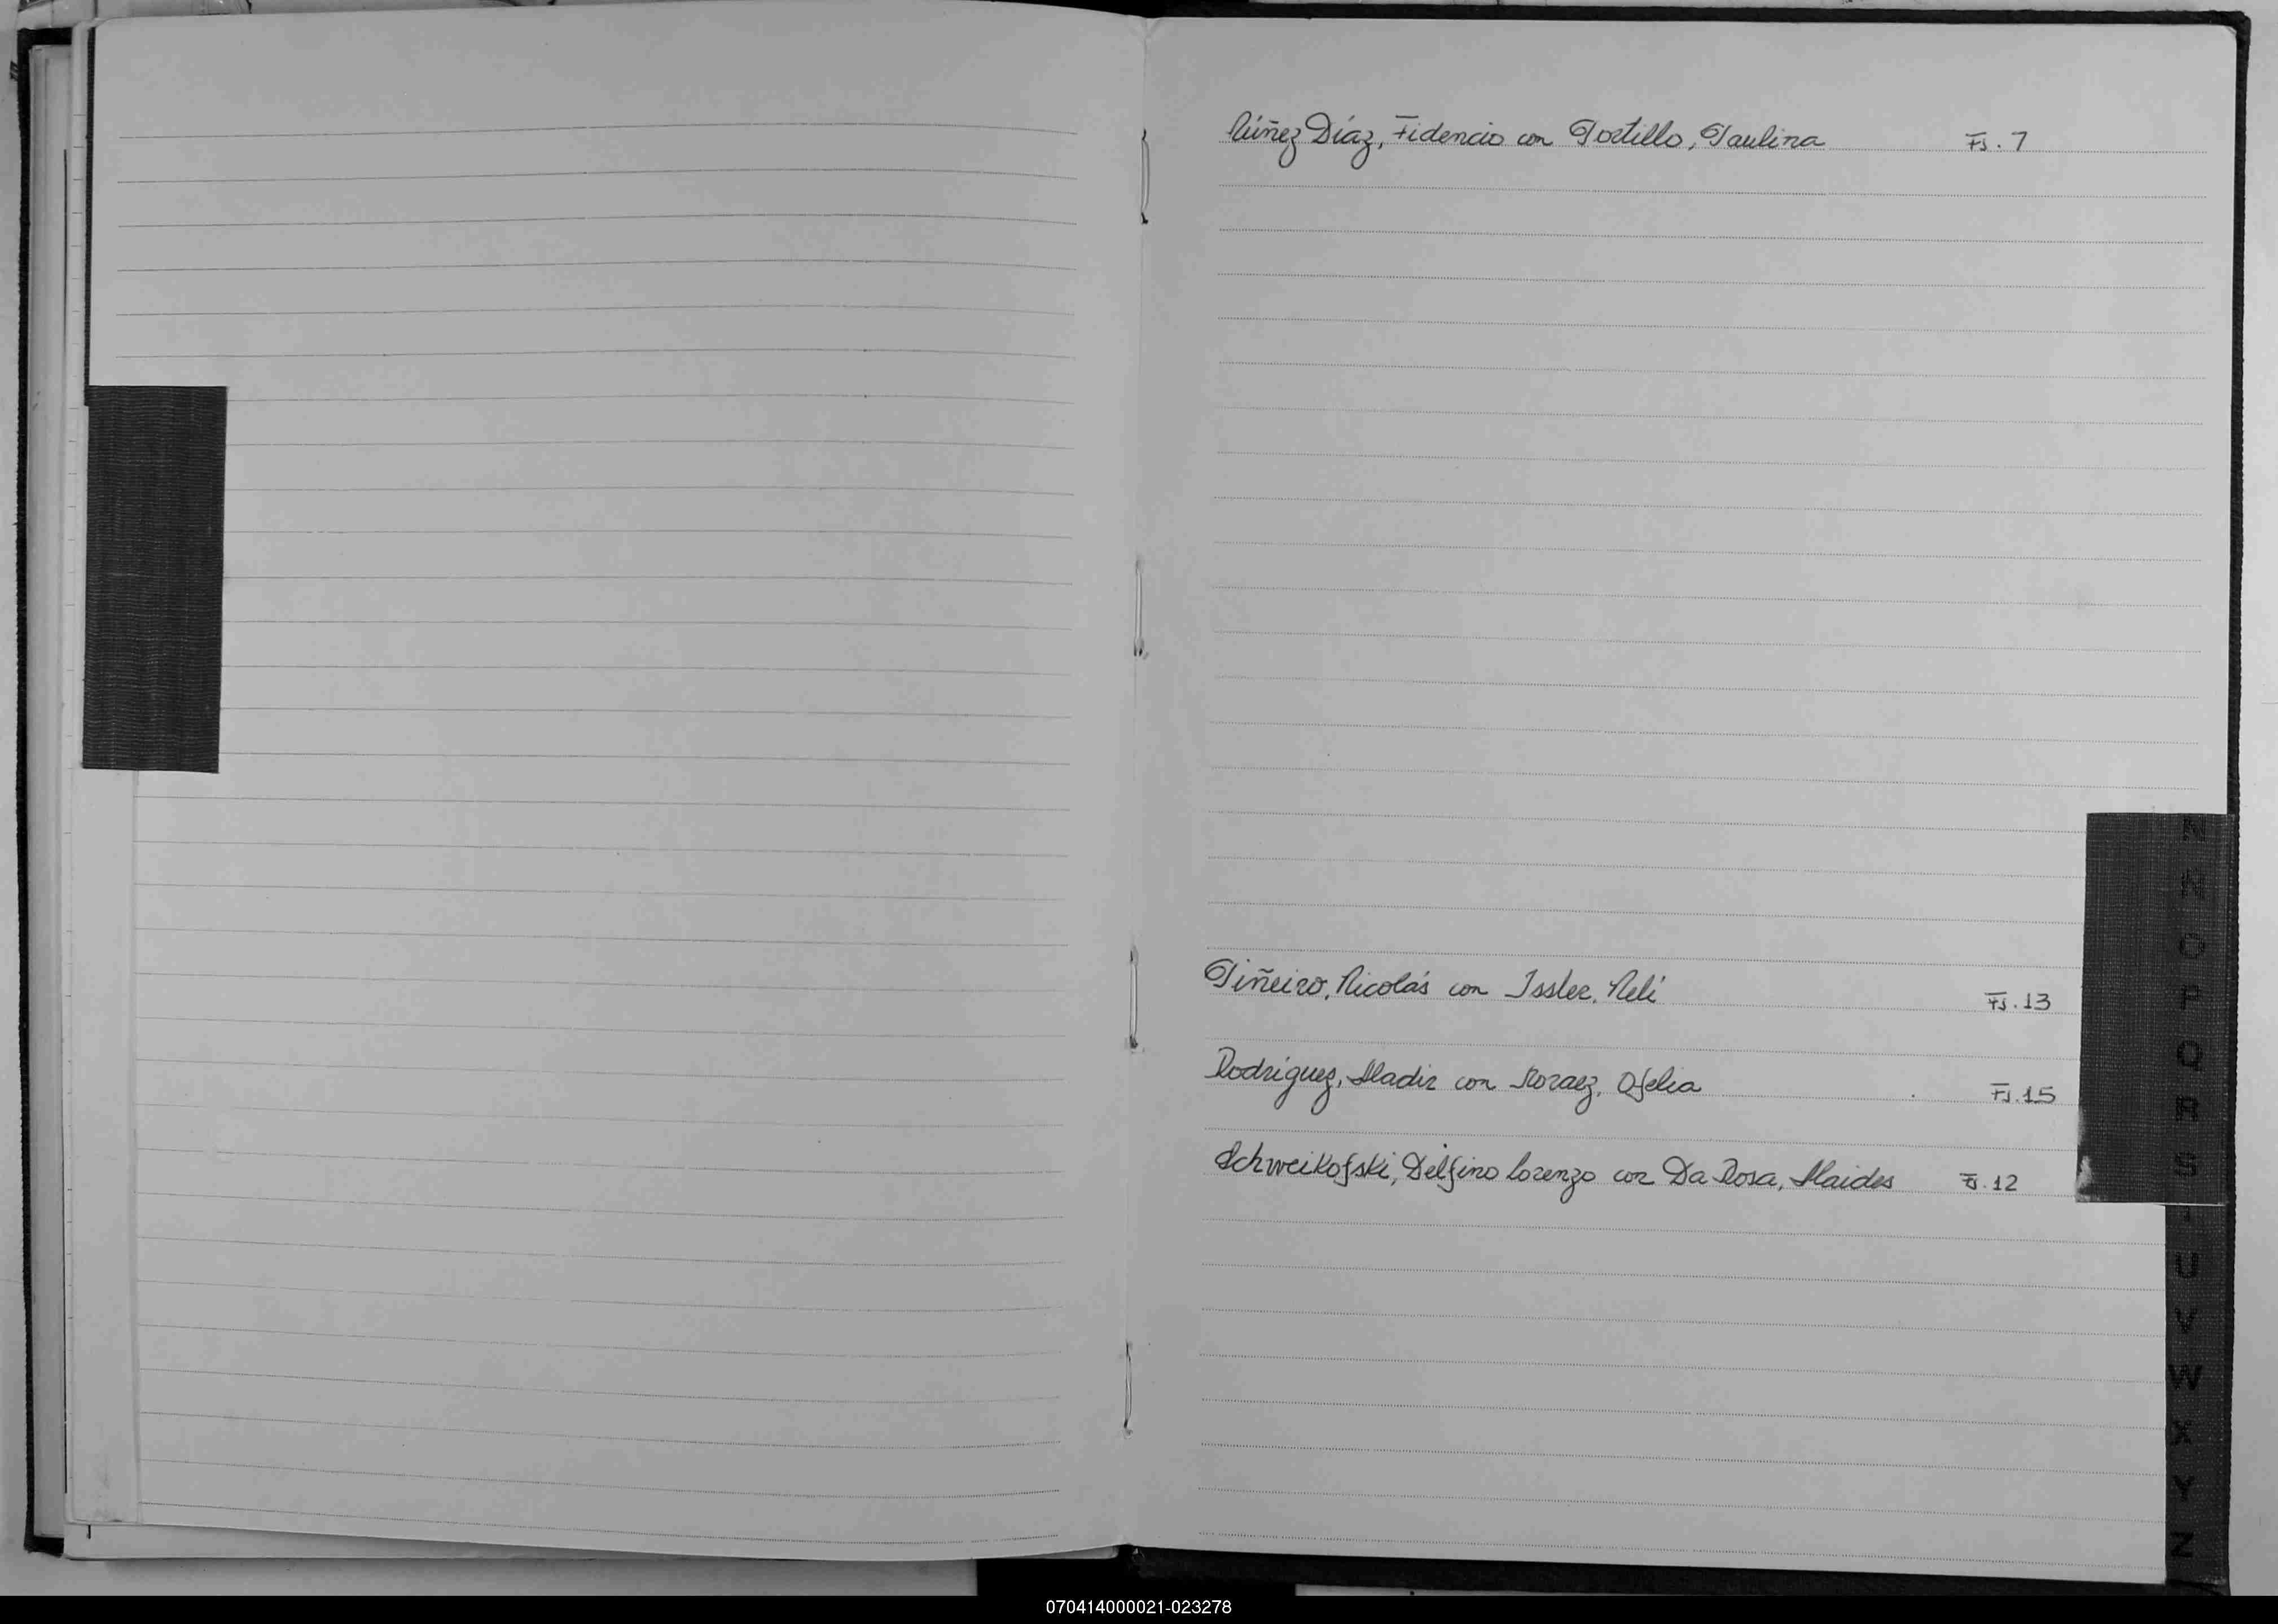 Núñez Díaz, Fidencio con Portillo, Paulina Fs. 7
Piñeiro, Nicolás con Issler, Neli Fs. 13
Rodríguez, Nadir con Moraez, Ofelia Fs. 15
Schweikofski, Delfino Lorenzo con Da Rosa, Naides Fs. 12
N
Ñ
O
P
Q
R
S
T
U
V
W
X
Y
Z
070414000021-023278